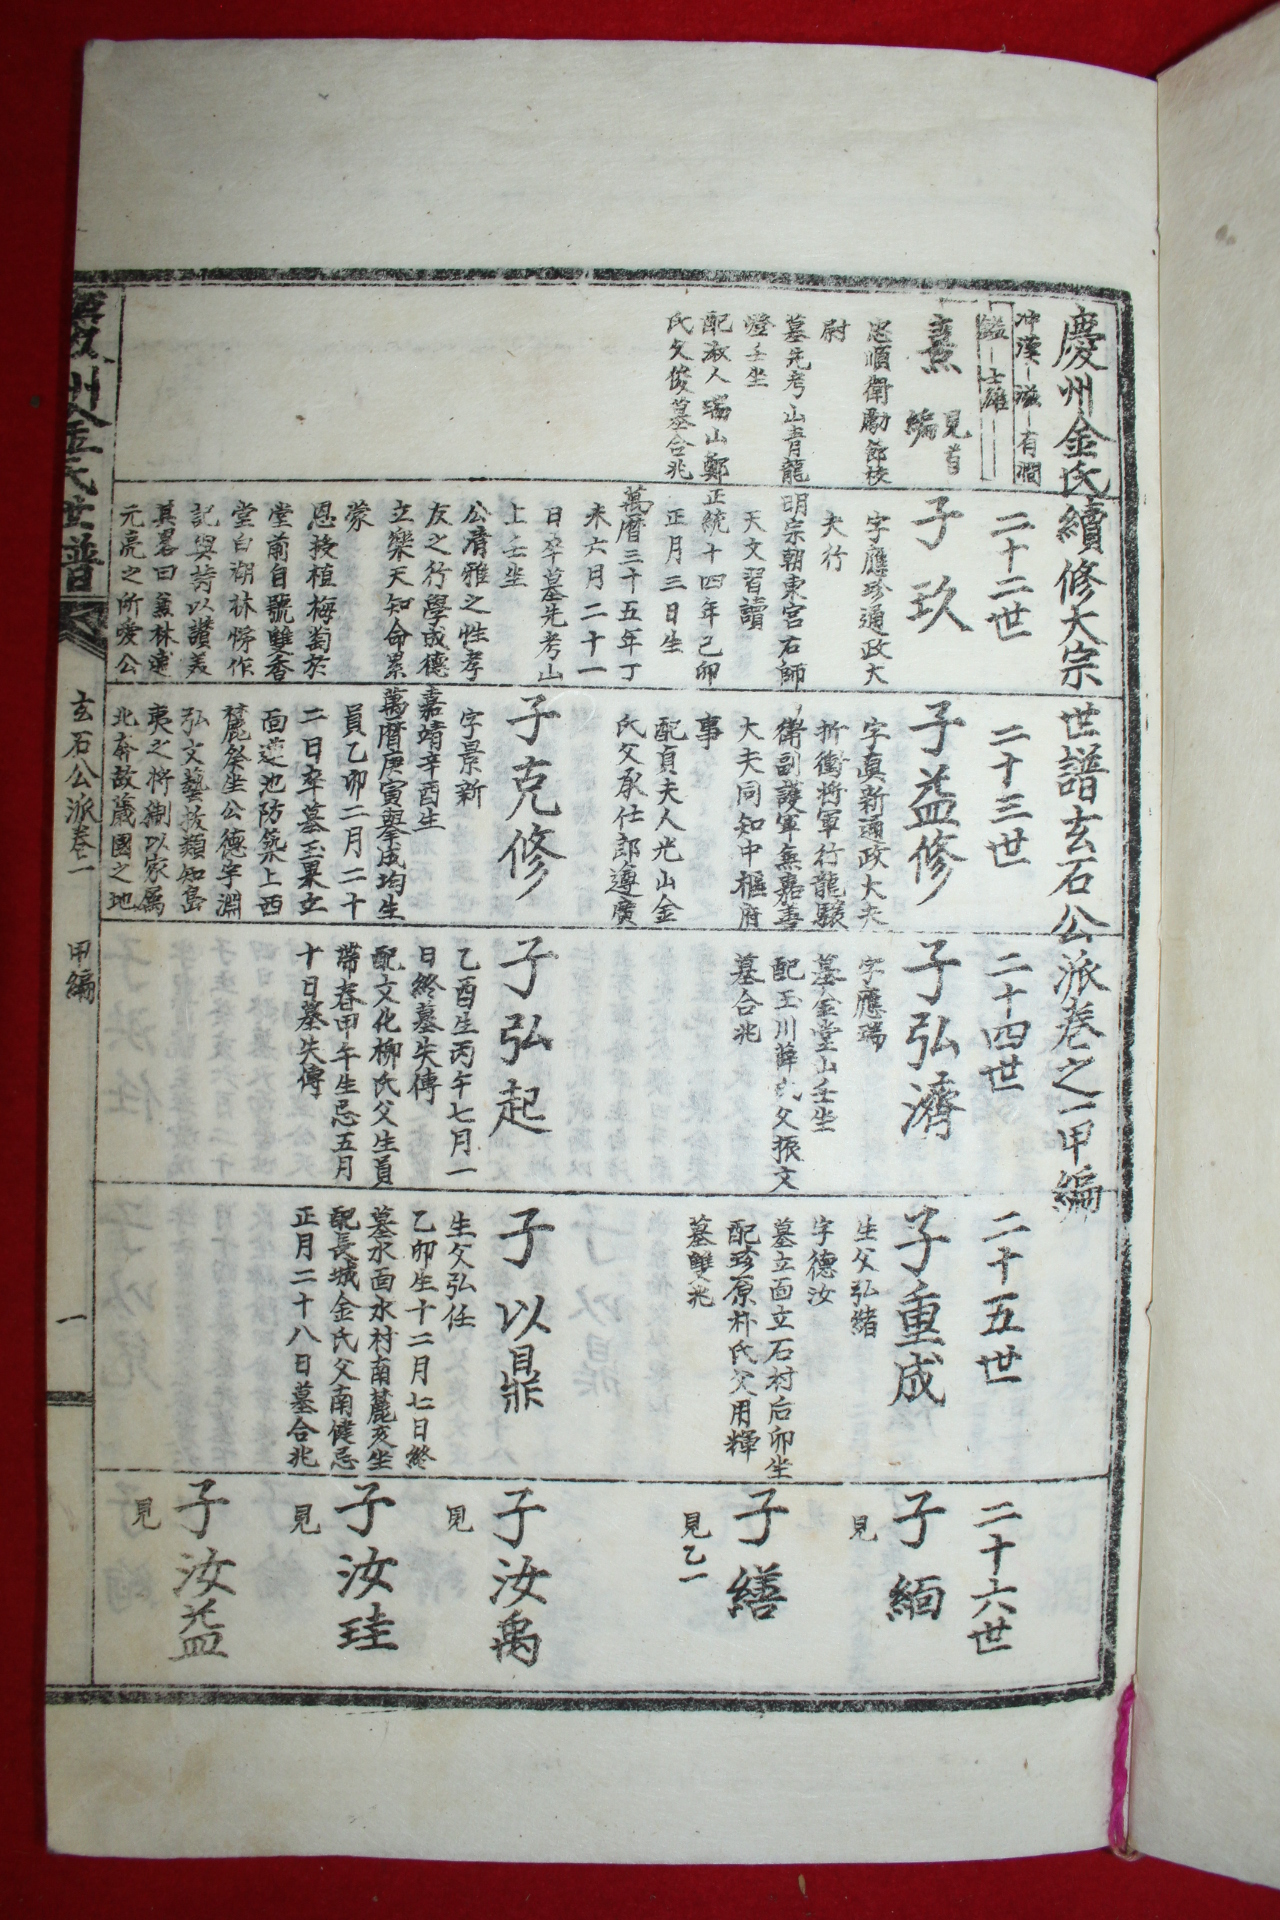 慶州金氏續修大宗世譜玄石公派卷之一甲編
冲漢－滋－有澗
鎰－士雄－
熹
見首
編
忠順衛勵節校
尉
墓先考山青龍
燈壬坐
配淑人瑞山鄭
氏父俊墓合兆
二十二世
子玖
字應珍通政大
夫行
明宗朝東宮右師
天文習讀
正統十四年己卯
正月三日生
萬曆三十五年丁
未六月二十一
日卒墓先考山
上壬坐
公清雅之性孝
友之行學成德
立樂天知命累
蒙
恩授植梅蘭於
堂前自號雙香
堂白湖林悌作
記與詩以讚美
其畧曰
元亮之所愛公
二十三世
子益修
字眞新通政大夫
折衝將軍行龍驤
衛副護軍無嘉善
大夫同知中樞府
事
配貞夫人光山金
氏父承仕郎遵廣
子克修
字景新
嘉靖辛酉生
萬曆庚寅擧成均生
員乙卯二月二十
二日卒墓玉果立
面蓮池防築上西
麓癸坐公德宇淵
弘文藝拔類知島
夷之將猘以家屬
北奔故箴國之地
二十四世
子弘濟
字應瑞
墓金堂山壬坐
配玉川薛氏父振文
墓合兆
子弘起
乙酉生丙午七月一
日終墓失傳
配文化柳氏父生員
帶春甲午生忌五月
十日墓失傳
二十五世
子重成
生父弘緖
字德汝
墓立面立石村后卯坐
配珍原朴氏父用輝
墓雙兆
子以鼎
生父弘任
乙卯生十二月七日終
墓水面水村南麓亥坐
配長城金氏父南健忌
正月二十八日墓合兆
二十六世
子緬
見
子繕
見乙一
子汝禹
見
子汝珪
見
子汝益
見
慶州金氏世譜
玄石公派卷二
甲編
一